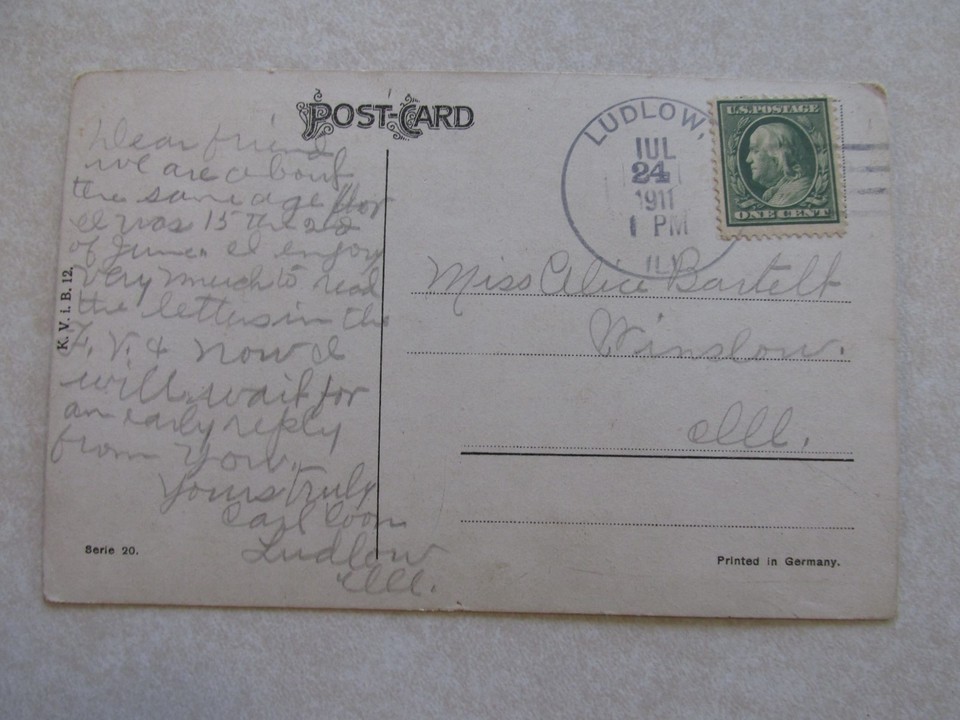 POST-CARD
Dear friend
we are about
the same age for
I was 15 the 22
of June. I enjoy
very much to read
the letters in the
F. V. & now I
will wait for
an early reply
from you.
Yours truly
Carl Coon
Ludlow
Ill.
K. V. i. B. 12.
Serie 20.
LUDLOW,
JUL
24
1911
1 PM
ILL
U.S. POSTAGE
ONE CENT
Miss Alice Bartelt
Winslow.
Ill.
Printed in Germany.